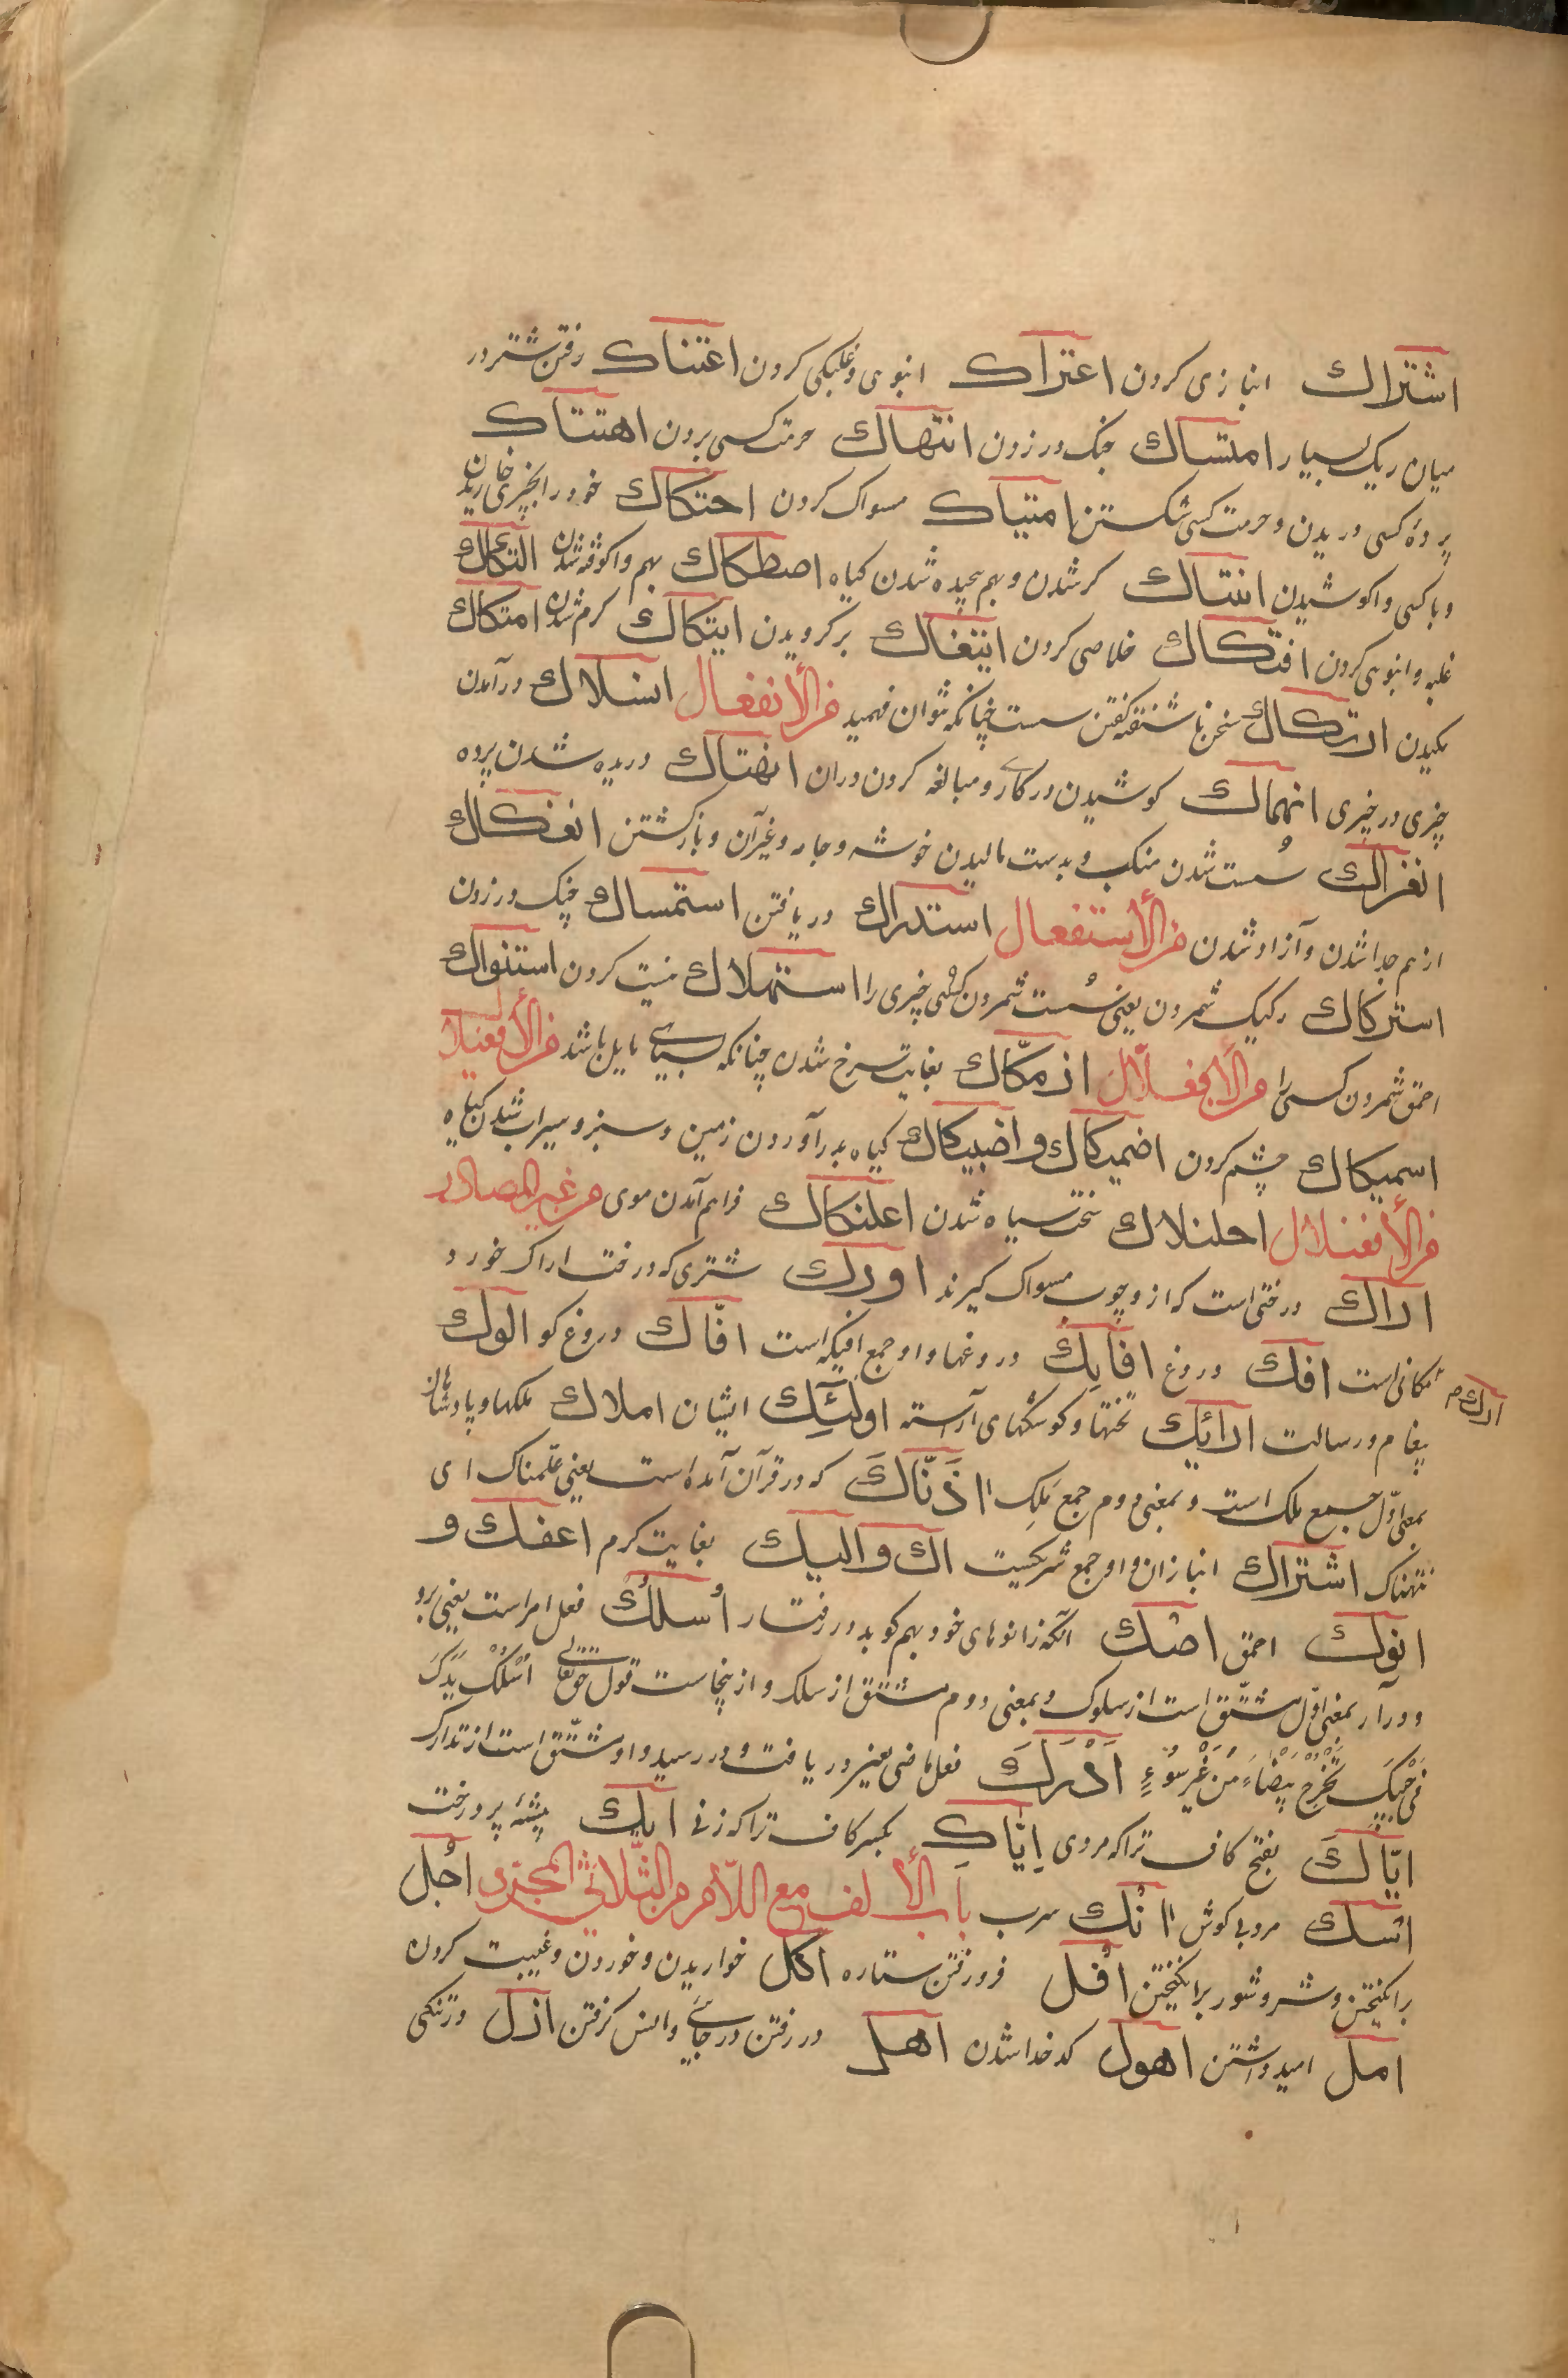 اشتراك انبازی کردن اعتراك انبوهی و غلبکی کردن اعتناك رفتن شتر در
میان ریک بسیار امتساك چنک در زدن انتهاك حرمت کسی بردن اهتتاك
پردهٔ کسی دریدن و حرمت کسی شکستن امتیاك مسواک کردن احتکاك خود را بچیزی خاریدن
و با کسی واکوشیدن انتتاك کر شدن و بهم پیچیده شدن کیاه اصطکاك بهم واکوفته شدن التکاك
غلبه و انبوهی کردن افتکاك خلاصی کردن ایتفاك برکردیدن ایتکاك کرم شدن امتکاك
مکیدن ارتکاك سخن ناشنفته کفتن سست چنانکه نتوان فهمید من الأنفعال انسلاك درآمدن
چیزی در چیزی انهماك کوشیدن در کاری و مبالغه کردن در آن انهتاك دریده شدن پرده
انفراك سُست شدن منکب و بدست مالیدن خوشه و جامه و غیر آن و بازکشتن انفکاك
از هم جدا شدن و آزاد شدن من الأستفعال استدراك دریافتن استمساك چنک در زدن
استرکاك رکیک شمردن یعنی سُست شمردن کسی چیزی را استهلاك نیست کردن استنواك
احمق شمردن کسی را من الأفعلّال ازمکّاك بغایت سرخ شدن چنانکه بسیاهی مایل باشد من الأفعیلا
اسمیکاك خشم کردن اضمیکاك و اضبیکاك کیاه بدر آوردن زمین و سبز و سیراب شدن کیاه
من الأفعنلال احلنلاك سخت سیاه شدن اعلنکاك فراهم آمدن موی من غیر المصادر
اراك درختی است که از و چوب مسواک کیرند اورك شتری که درخت اراک خورد و
مکانی است افك دروغ افایك دروغها و او جمع افیکه است افّاك دروغ کو الوك
ارك م
پیغام و رسالت ارائك تختها و کوشکهای آراسته اولئك ایشان املاك ملکها و پادشاهان
بمعنی اوّل جمع ملک است و بمعنی دوم جمع مَلِک اذنّاك که در قرآن آمده است یعنی علّمناک ای
اشتراك انبازان و او جمع شریکست اك و الیك بغایت کرم اعفك و
انوك احمق اصك آنکه زانوهای خود بهم کوبد در رفتار اُسلُك فعل امر است یعنی برو
و درآر بمعنی اوّل مشتّق است از سلوک و بمعنی دوم مشتق از سلک و از ینجاست قول حق تعالی اُسْلُكْ یَدَكَ
فِی جَیْبِكَ تَخْرُجْ بَیْضَاءَ مِنْ غَیْرِ سُوءٍ اَدْرَكَ فعل ماضی یعنی در یافت و در رسید و او مشتّق است از تدارک
ایّاكَ بفتح کاف ترا که مردی اِیّاكِ بکسر کاف ترا که زنی ایك بیشهٔ پر درخت
اسك مرد بی کوش اانك سرب باب الألف مع اللاّم من الثّلاثی المجرّد اجل
برانکیختن و شر و شور برانکیختن افل فرو رفتن ستاره اکل خواریدن و خوردن و غیبت کردن
امل امید داشتن اهول کدخدا شدن اهل در رفتن در جائی و انس کرفتن ازل در تنکی